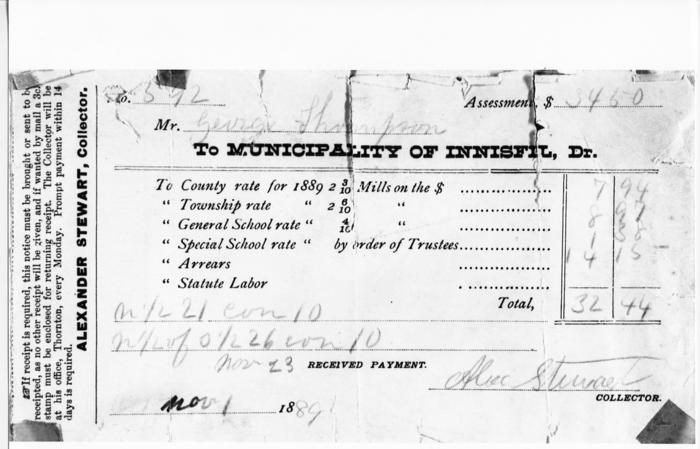 No. 592 Assessment, $ 3450
Mr. George Thompson
To MUNICIPALITY OF INNISFIL, Dr.
To County rate for 1889 2 3/10 Mills on the $ 7 94
“ Township rate “ 2 6/10 “ 8 97
“ General School rate “ 4/10 “ 1 38
“ Special School rate “ by order of Trustees 14 15
“ Arrears
“ Statute Labor
Total, 32 44
n/2 21 con 10
n/2 of s/2 26 con 10
Nov 23 RECEIVED PAYMENT.
Alex Stewart
COLLECTOR.
Nov 1 1889
☞If receipt is required, this notice must be brought or sent to be
receipted, as no other receipt will be given, and if wanted by mail a 3c.
stamp must be enclosed for returning receipt. The Collector will be
at his office, Thornton, every Monday. Prompt payment within 14
days is required.
ALEXANDER STEWART, Collector.